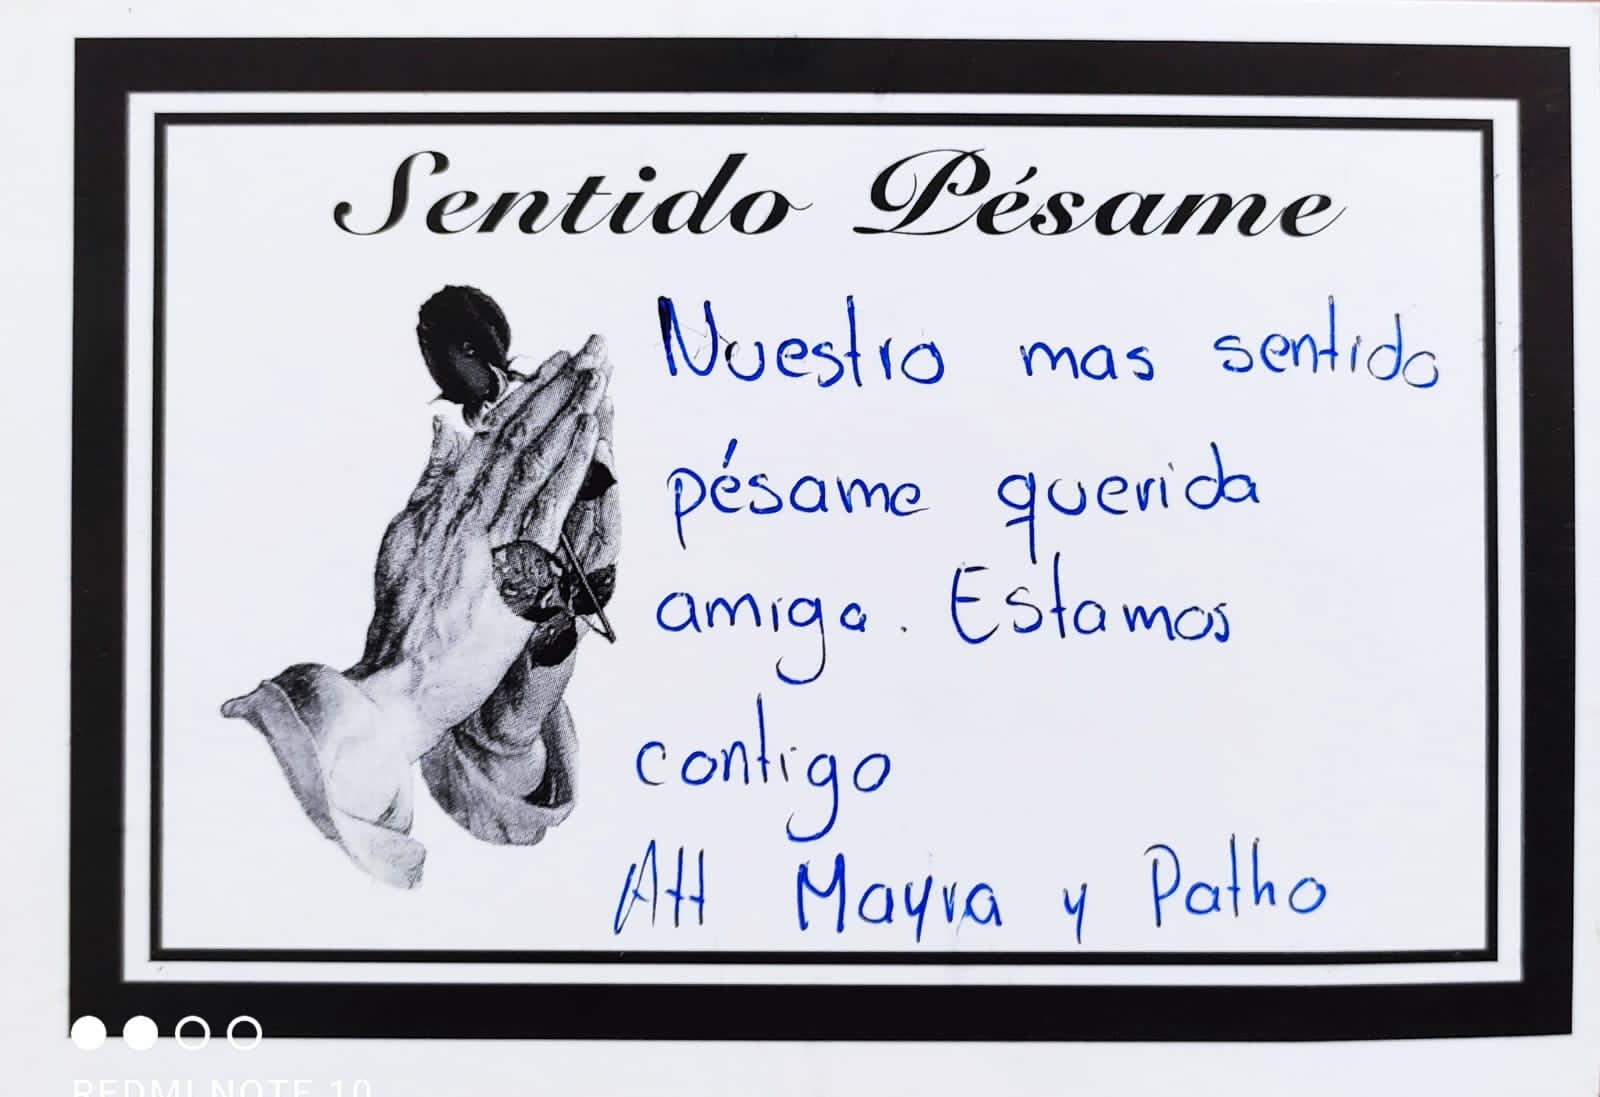 Sentido Pésame
Nuestro mas sentido
pésame querida
amiga. Estamos
contigo
Att Mayra y Patho
REDMI NOTE 10